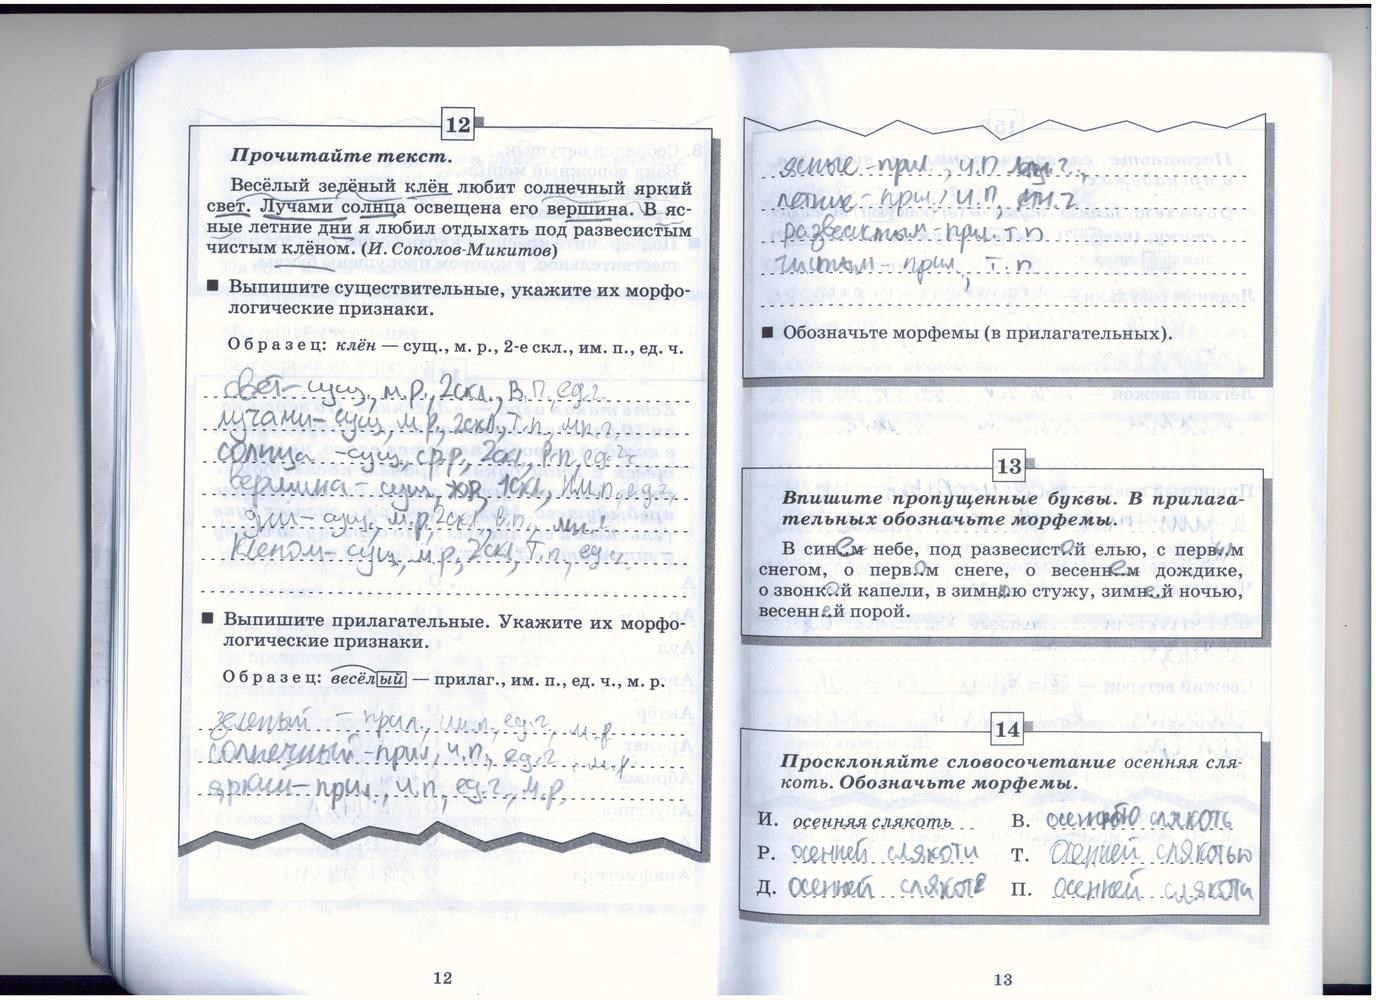 12
Прочитайте текст.
Весёлый зелёный клён любит солнечный яркий
свет. Лучами солнца освещена его вершина. В яс-
ные летние дни я любил отдыхать под развесистым
чистым клёном. (И. Соколов-Микитов)
■ Выпишите существительные, укажите их морфо-
логические признаки.
Образец: клён — сущ., м. р., 2-е скл., им. п., ед. ч.
свет- сущ, м.р., 2скл., В.п., ед.ч.
лучами- сущ, м.р., 2скл., Т.п., мн.ч.
солнца -сущ, ср.р., 2скл, Р.п, ед.ч.
вершина- сущ, ж.р, 1скл, И.п., ед.ч.
дни- сущ, м.р, 2скл, в.п., мн.ч
клёном- сущ, м.р., 2скл, Т.п, ед.ч.
■ Выпишите прилагательные. Укажите их морфо-
логические признаки.
Образец: весёлый — прилаг., им. п., ед. ч., м. р.
зелёный - прил, им.п, ед.ч, м.р
солнечный-прил, и.п., ед.ч., м.р
яркий-прил., и.п., ед.ч., м.р.
12
ясные -прил, и.п.
летние - прил, и.п, мн.ч
развесистым-прил, т.п
чистым- прил, т.п
■ Обозначьте морфемы (в прилагательных).
13
Впишите пропущенные буквы. В прилага-
тельных обозначьте морфемы.
В синем небе, под развесистой елью, с первым
снегом, о первом снеге, о весеннем дождике,
о звонкой капели, в зимнюю стужу, зимней ночью,
весенней порой.
14
Просклоняйте словосочетание осенняя сля-
коть. Обозначьте морфемы.
И. осенняя слякоть В. слякоть
Р. осенней слякоти Т. осенней слякотью
Д. осенней слякоте П. осенней слякоти
13